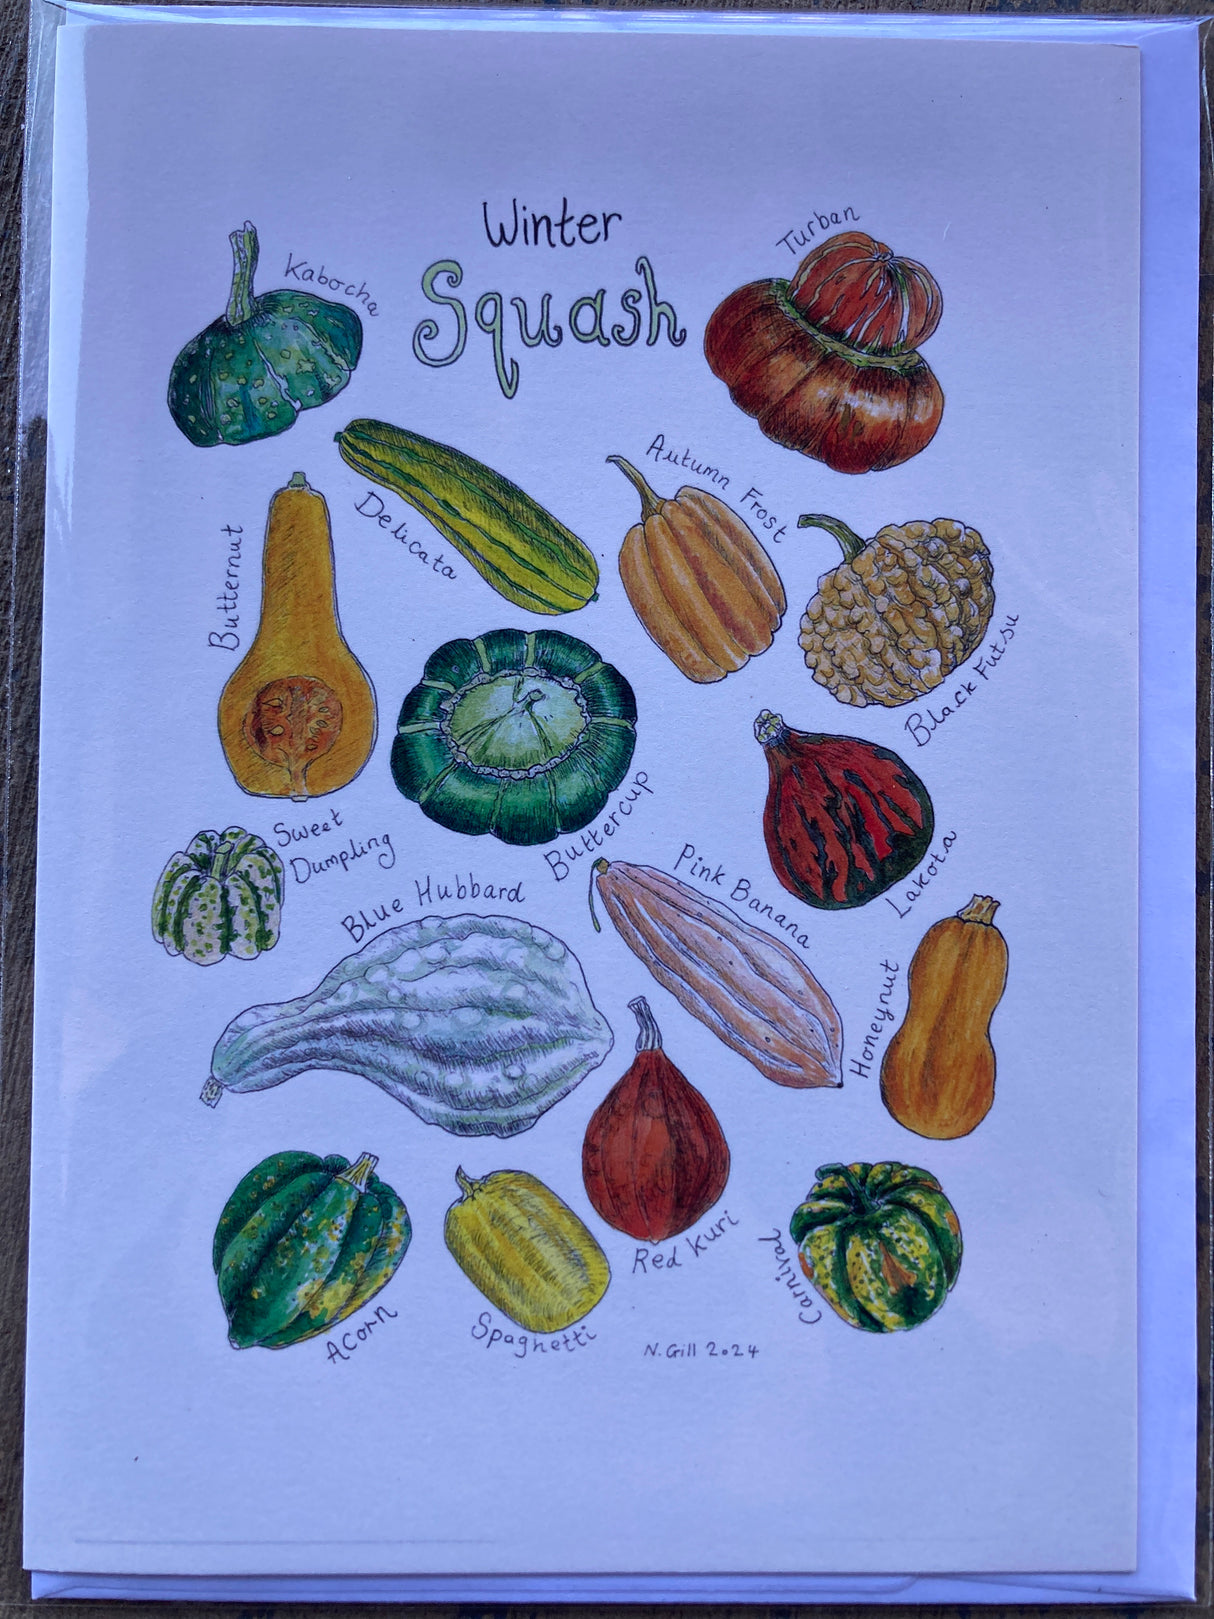 Winter
Squash
Kabocha
Turban
Delicata
Autumn Frost
Butternut
Black Futsu
Buttercup
Sweet
Dumpling
Lakota
Pink Banana
Blue Hubbard
Honeynut
Red Kuri
Carnival
Acorn
Spaghetti
N. Gill 2024